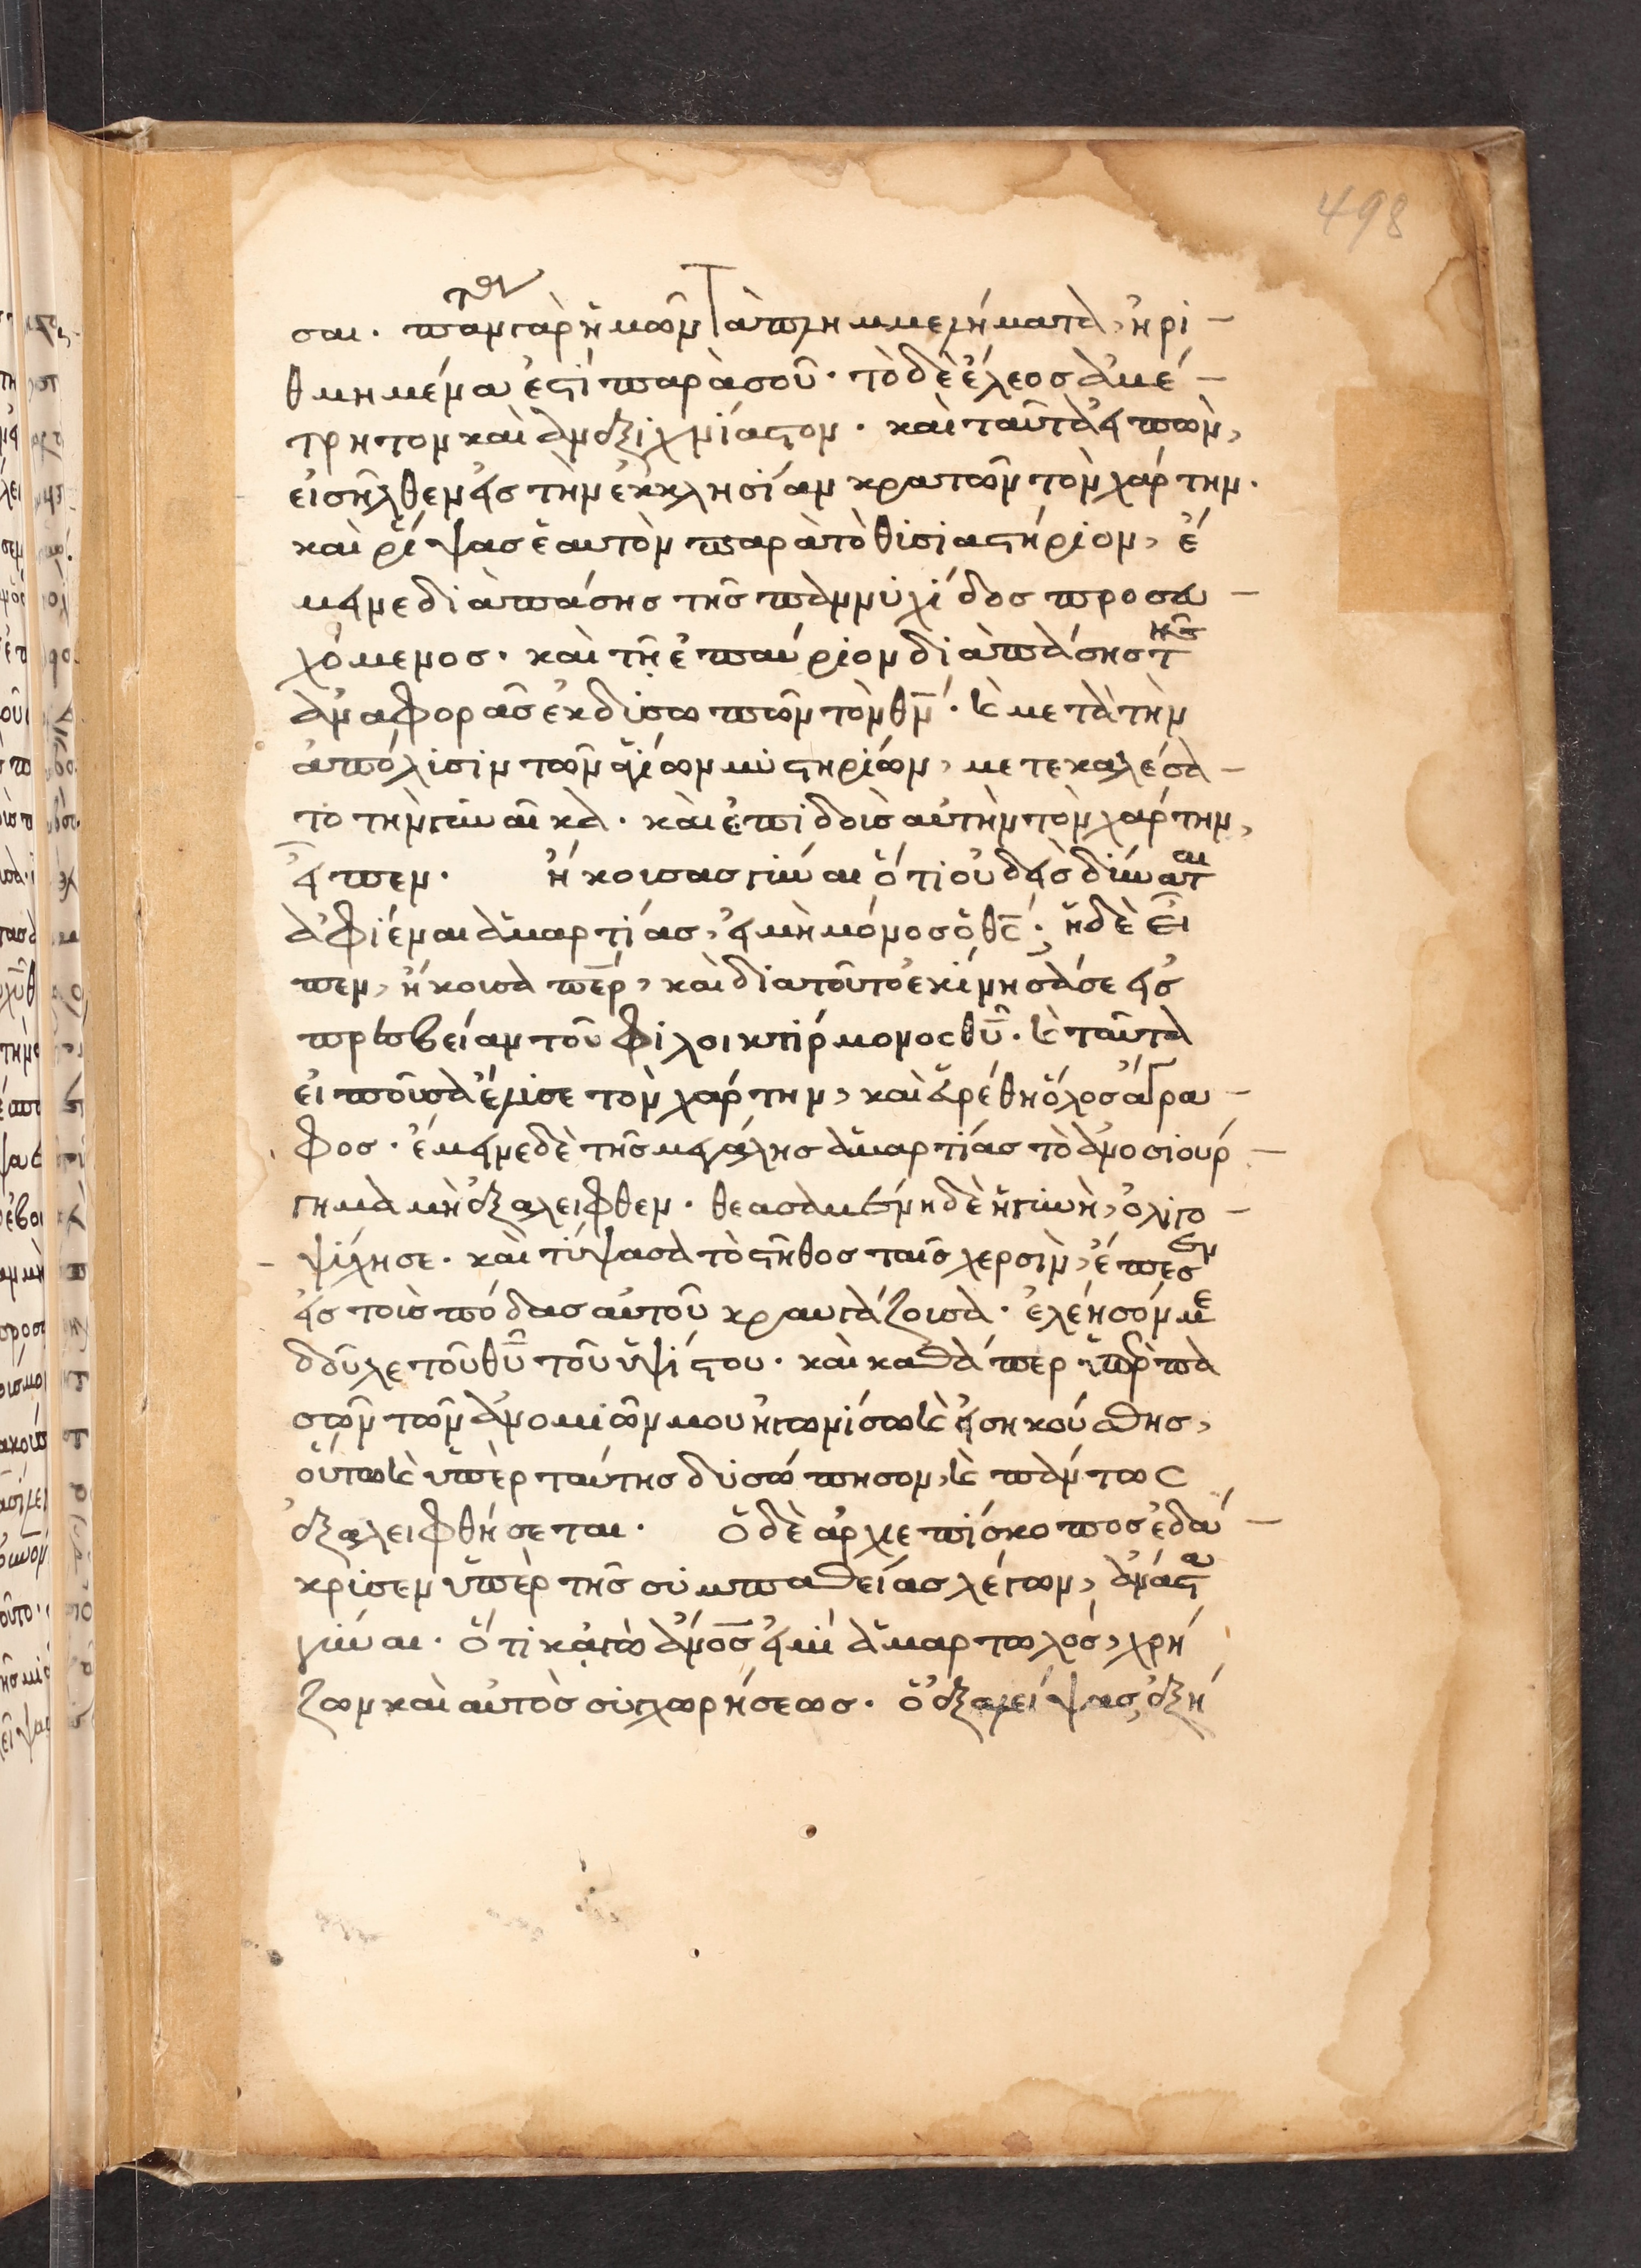 σαι. πάντων γὰρ ἡμῶν τὰ πλημμελήματα, ἠρι-
θμημένα ἐστὶ παρὰ σοῦ. τὸ δὲ ἔλεος ἀμέ-
τρητον καὶ ἀνεξιχνίαστον. καὶ ταῦτα εἰπὼν,
εἰσῆλθεν εἰς τὴν ἐκκλησίαν κρατῶν τὸν χάρτην.
καὶ ῥίψας ἑαυτὸν παρὰ τὸ θυσιαστήριον, ἔ
μεινε διὰ πάσης τῆς παννυχίδος προσευ-
χόμενος. καὶ τῇ ἐπαύριον διὰ πάσης τῆς
ἀναφορᾶς ἐκδυσωπῶν τὸν θν̅. κὲ μετὰ τὴν
ἀπόλυσιν τῶν ἁγίων μυστηρίων, μετεκαλέσα-
το τὴν γυναῖκα. καὶ ἐπιδοὺς αὐτὴν τὸν χάρτην,
εἶπεν. ἤκουσας γύναι ὅτι οὐδεὶς δύναται
ἀφιέναι ἁμαρτίας, εἰ μὴ μόνος ὁ θς̅; ἡ δὲ εἶ
πεν, ἤκουσα περ̅, καὶ διὰ τοῦτο ἐκίνησά σε εἰς
πρεσβείαν τοῦ φιλοικτίρμονος θυ̅. κὲ ταῦτα
εἰποῦσα ἔλυσε τὸν χάρτην, καὶ εὑρέθη ὅλος ἄγρα-
φος. ἔμεινε δὲ τῆς μεγάλης ἁμαρτίας τὸ ἀνοσιούρ-
γημα μὴ ἐξαλειφθεν. θεασαμένη δὲ ἡ γυνὴ, ὀλιγο-
ψύχησε. καὶ τύψασα τὸ στῆθος ταῖς χερσὶν, ἔπεσεν
εἰς τοὺς πόδας αὐτοῦ κραυγάζουσα. ἐλέησόν με
δοῦλε τοῦ θυ̅ τοῦ ὑψίστου. καὶ καθάπερ ὑπὲρ πα
σῶν τῶν ἀνομιῶν μου ἠγωνίσω κὲ εἰσηκούσθης,
οὕτω κὲ ὑπὲρ ταύτης δυσώπησον, κὲ πάντως
ἐξαλειφθήσεται. Ὁ δὲ ἀρχιεπίσκοπος ἐδά-
κρυσεν ὑπὲρ τῆς συμπαθείας λέγων, ἀνάστα
γύναι. ὅτι κἀγὼ ἄνος̅ εἰμὶ ἁμαρτωλὸς, χρή
ζων καὶ αὐτὸς συγχωρήσεως. ὁ ἐξαλείψας, ἐξή
498